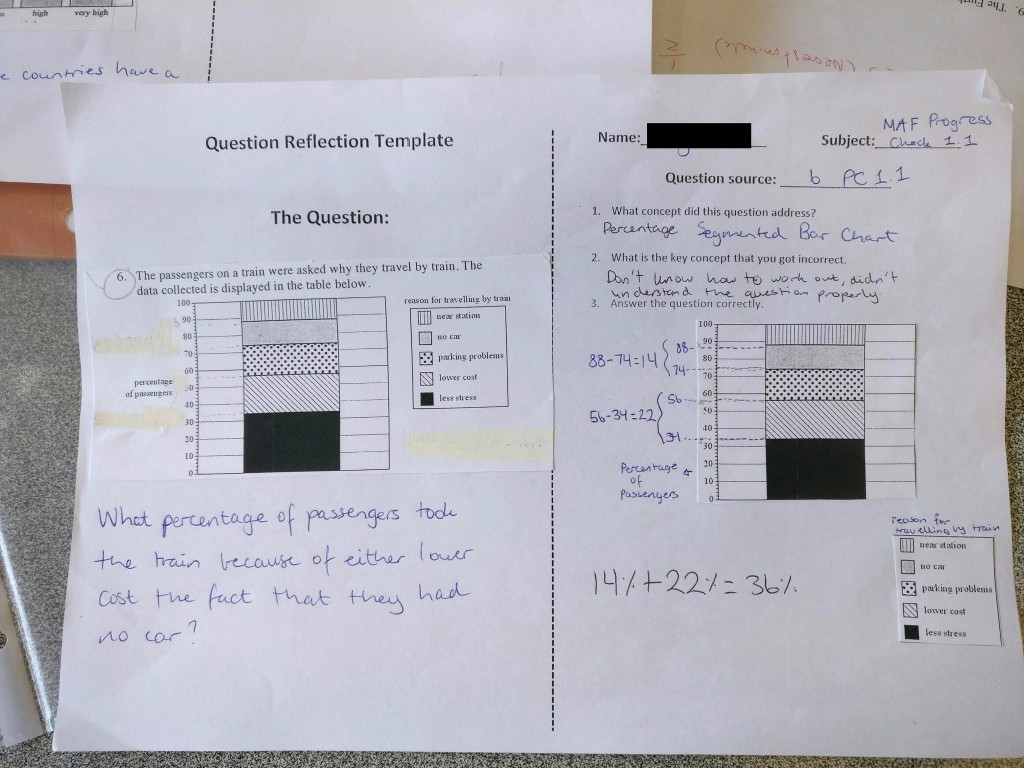 high
very high
countries have a
Question Reflection Template
The Question:
6. The passengers on a train were asked why they travel by train. The
data collected is displayed in the table below.
100
90
80
70
60
50
40
30
20
10
0
percentage
of passengers
reason for travelling by train
near station
no car
parking problems
lower cost
less stress
What percentage of passengers took
the train because of either lower
cost the fact that they had
no car?
Name:
Subject: MAF Progress
Check 1.1
Question source: 6 PC 1.1
1. What concept did this question address?
Percentage Segmented Bar Chart
2. What is the key concept that you got incorrect.
Don't know how to work out, didn't
understand the question properly
3. Answer the question correctly.
88-74=14
88-
74-
56-34=22
56
34
100
90
80
70
60
50
40
30
20
10
0
Percentage
of
Passengers
reason for
travelling by train
near station
no car
parking problems
lower cost
less stress
14%+22%=36%